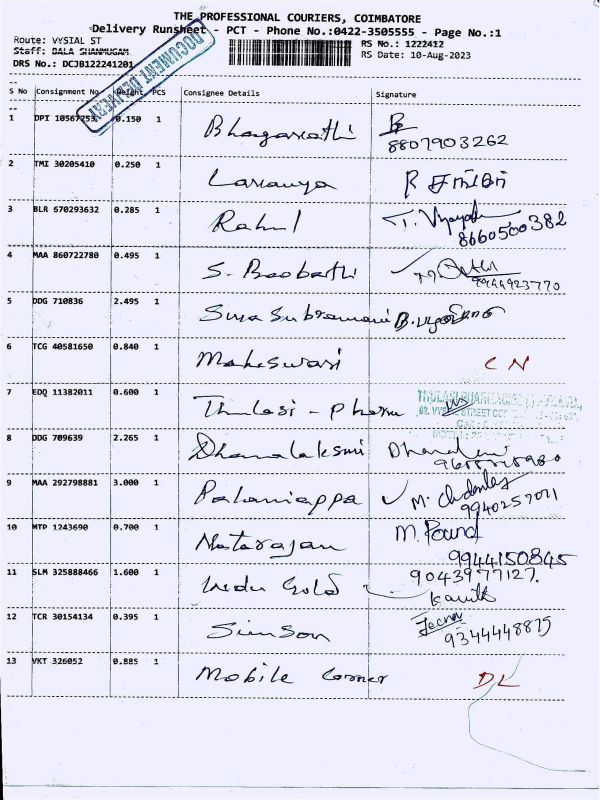 THE PROFESSIONAL COURIERS, COIMBATORE
Delivery Runsheet - PCT - Phone No.:0422-3505555 - Page No.:1
Route: VYSIAL ST RS No.: 1222412
Staff: BALA SHANMUGAM RS Date: 10-Aug-2023
DRS No.: DCJB122241201
DOCUMENT DELIVERY
S No Consignment No Weight PCS Consignee Details Signature
1 DPI 10567253 0.150 1 Bhagarathi
8807903262
2 TMI 30205410 0.250 1 Lavanya R
3 BLR 670293632 0.285 1 Rahul T.
8660500382
4 MAA 860722780 0.495 1 S.
9944923770
5 DDG 710836 2.495 1 Siva Subramani B.
6 TCG 40581650 0.840 1 Maheswari C N
7 EDQ 11382011 0.600 1 Thulasi - Pharm
8 DDG 709639 2.265 1 Dhanalaksmi
9 MAA 292798881 3.000 1 Palaniappa M.
9940257071
10 MTP 1243690 0.700 1 Natarajan M.
9944150845
11 SLM 325888466 1.600 1 Gold 9043977127.
12 TCR 30154134 0.395 1 Simson
9344448875
13 VKT 326052 0.885 1 Mobile Corner DL